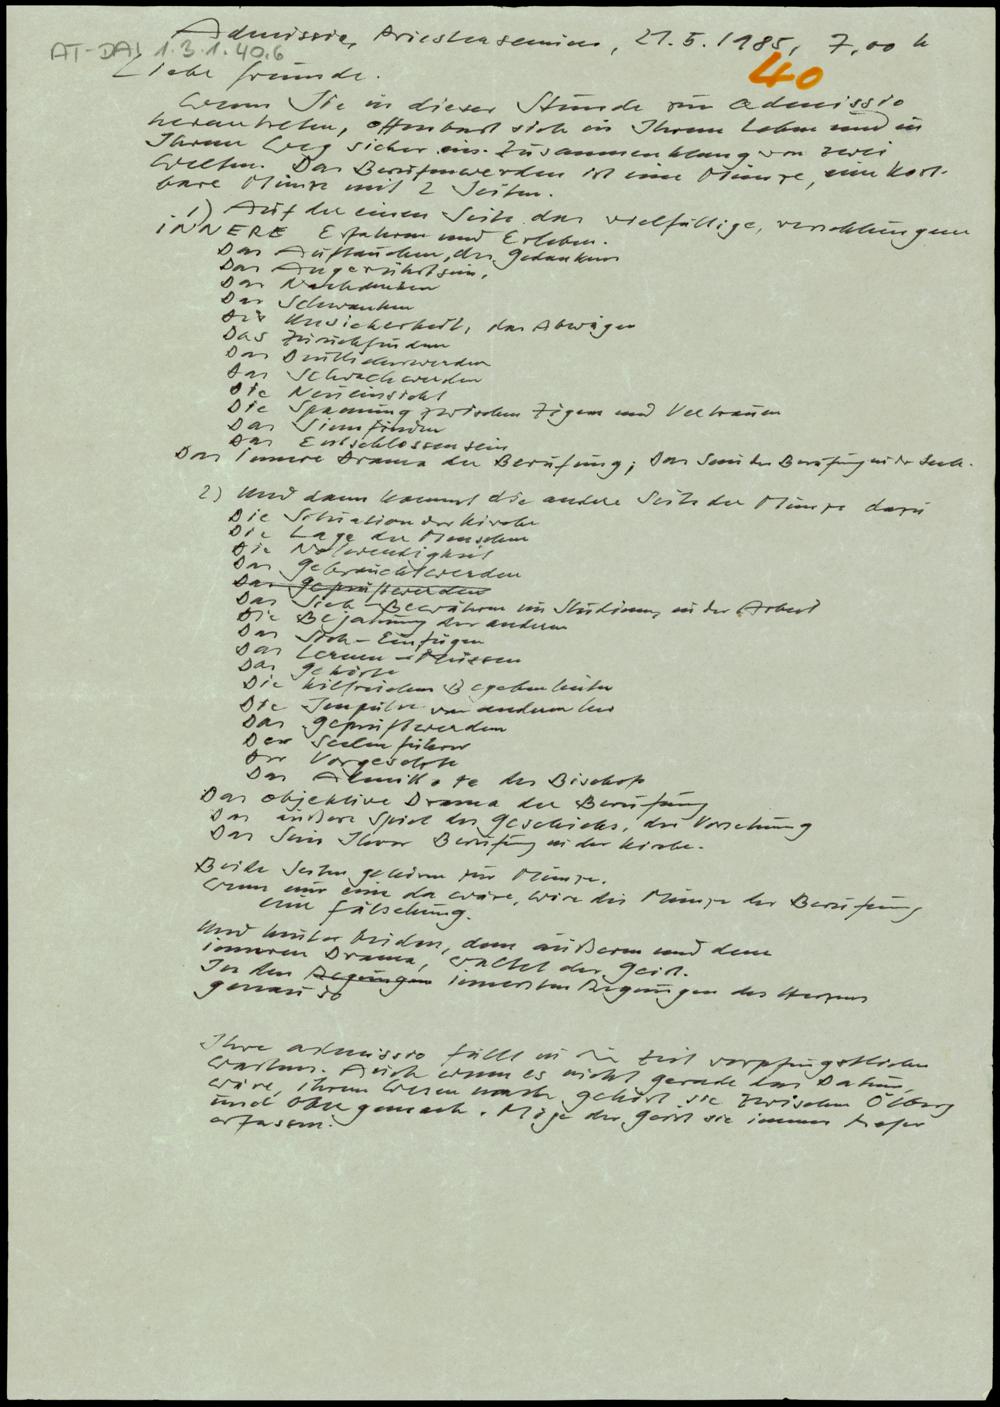 Admissio, Priesterseminar, 21.5.1985, 7,00 h
AT-DAI 1.3.1.40.6
40
Liebe Freunde.
Wenn Sie in dieser Stunde zur Admissio
herantreten, offenbart sich in Ihrem Leben und in
Ihrem Weg sicher ein Zusammenklang von zwei
Welten. Das Berufenwerden ist eine Münze, eine kost-
bare Münze mit 2 Seiten.
1) Auf der einen Seite das vielfältige, verschlungene
INNERE Erfahren und Erleben.
Das Auftauchen des Gedankens
Das Angerührtsein,
Das Nachdenken
Das Schwanken
Die Unsicherheit, das Abwägen
Das Zurückfinden
Das Deutlicherwerden
Das Schwachwerden
Die Neueinsicht
Die Spannung zwischen Zögern und Vertrauen
Das Sinnfinden
Das Entschlossensein
Das innere Drama der Berufung; Das Sein der Berufung in der Seele.
2) Und dann kommt die andere Seite der Münze dazu
Die Situation der Kirche
Die Lage der Menschen
Die Notwendigkeit
Das Gebrauchtwerden
Das Geprüftwerden
Das Sich-Bewähren im Studium, in der Arbeit
Die Bejahung der anderen
Das Sich-Einfügen
Das Lernen-Müssen
Das Gehörte
Die hilfreichen Begebenheiten
Die Impulse von anderen her
Das Geprüftwerden
Der Seelenführer
Der Vorgesetzte
Das Admitto te des Bischofs
Das objektive Drama der Berufung
Das äußere Spiel des Geschicks, der Vorsehung
Das Sein Ihrer Berufung in der Kirche.
Beide Seiten gehören zur Münze.
Wenn nur eine da wäre, wäre die Münze der Berufung
eine Fälschung.
Und hinter beiden, dem äußeren und dem
inneren Drama, waltet der Geist.
In den Regungen innersten Regungen des Herzens
genau so
Ihre Admissio fällt in die Zeit vorpfingstlichen
Wartens. Auch wenn es nicht gerade das Datum
wäre, ihrem Wesen nach gehört sie zwischen Ölberg
und Obergemach. Möge der Geist sie immer tiefer
erfassen.